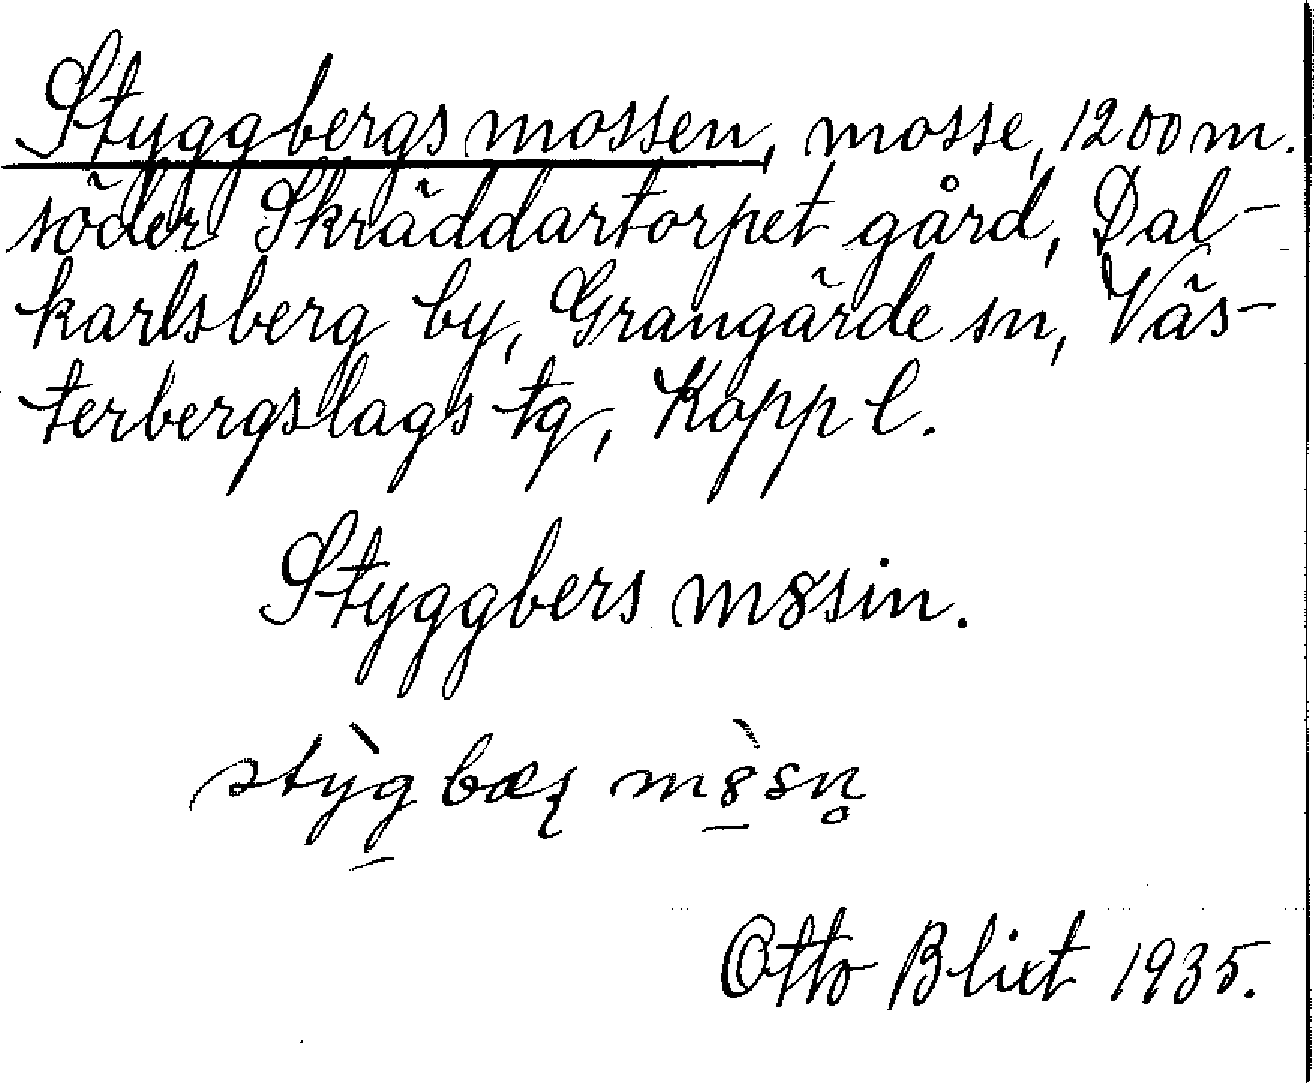 Styggbergsmossen, mosse, 1200 m.
söder Skräddartorpet gård, Dal-
karlsberg by, Grangärde sn, Väs-
terbergslags tg, Kopp l.
Styggbers m8sin.
stỳg̠ bæʂ m8̠̀sn̥
Otto Blixt 1935.